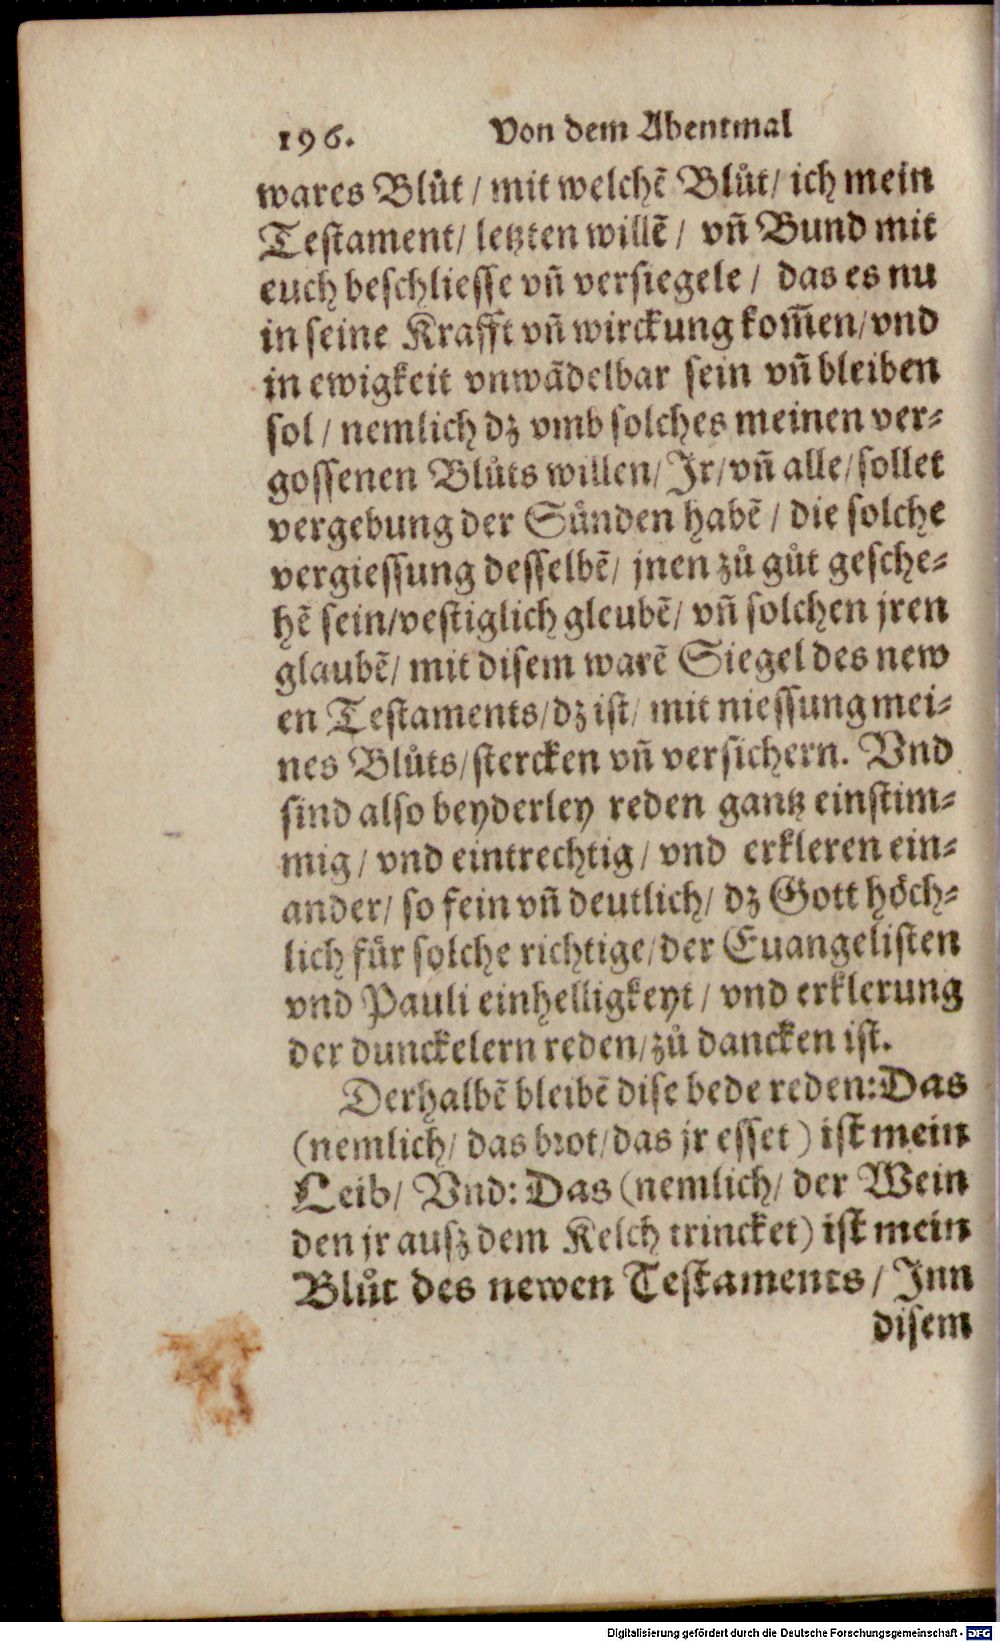 196. Von dem Abentmal
wares Blůt / mit welchē Blůt / ich mein
Testament / letzten willē / vñ Bund mit
euch beschliesse vñ versiegele / das es nu
in seine Krafft vñ wirckung kom̄en / vnd
in ewigkeit vnwādelbar sein vñ bleiben
sol / nemlich dz vmb solches meinen ver-
gossenen Blůts willen / Jr / vñ alle / sollet
vergebung der Sünden habē / die solche
vergiessung desselbē / jnen zů gůt gesche-
hē sein / vestiglich gleubē / vñ solchen jren
glaubē / mit disem warē Siegel des new
en Testaments / dz ist / mit niessung mei-
nes Blůts / stercken vñ versichern. Vnd
sind also beyderley reden gantz einstim-
mig / vnd eintrechtig / vnd erkleren ein-
ander / so fein vñ deutlich / dz Gott höch-
lich für solche richtige / der Euangelisten
vnd Pauli einhelligkeyt / vnd erklerung
der dunckelern reden / zů dancken ist.
Derhalbē bleibē dise bede reden: Das
(nemlich / das brot / das jr esset) ist mein
Leib / Vnd: Das (nemlich / der Wein
den jr ausz dem Kelch trincket) ist mein
Blůt des newen Testaments / Jnn
disem
Digitalisierung gefördert durch die Deutsche Forschungsgemeinschaft - DFG